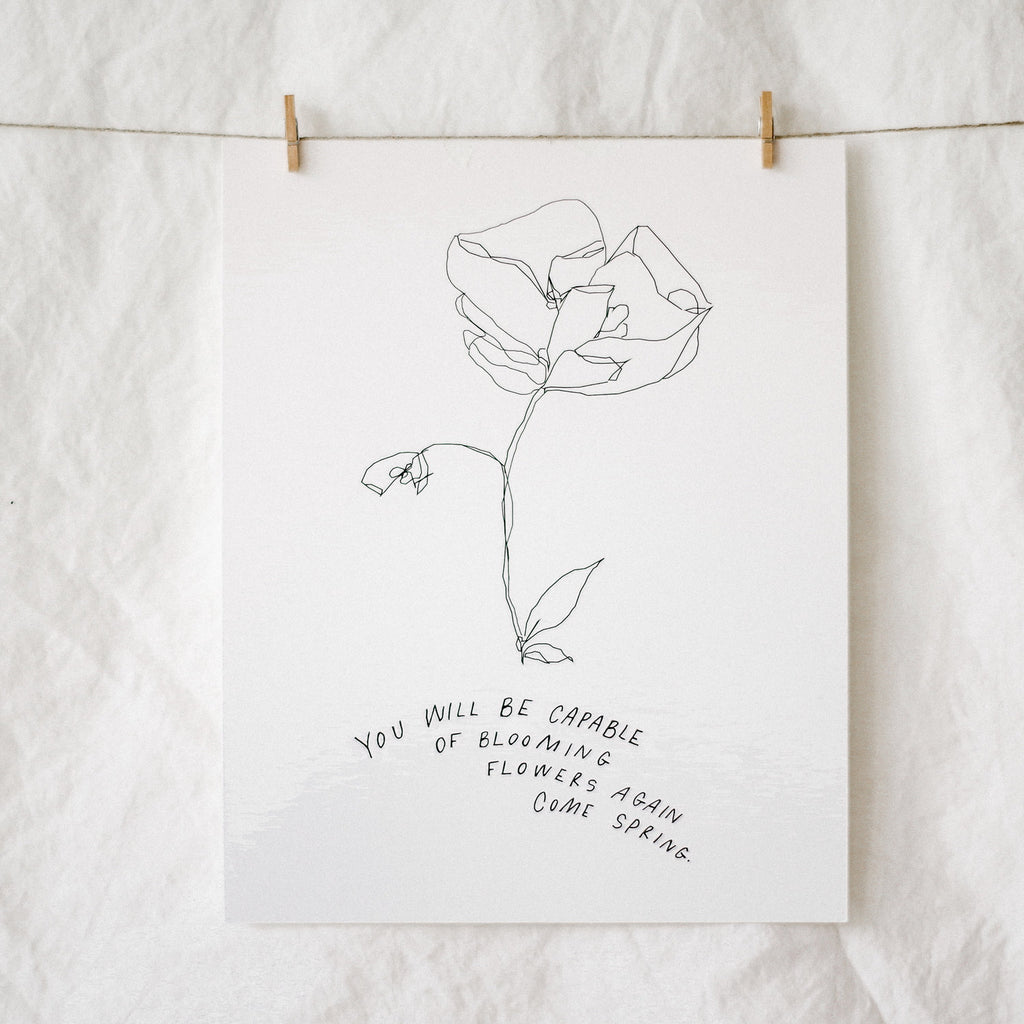 YOU WILL BE CAPABLE
OF BLOOMING
FLOWERS AGAIN
COME SPRING.